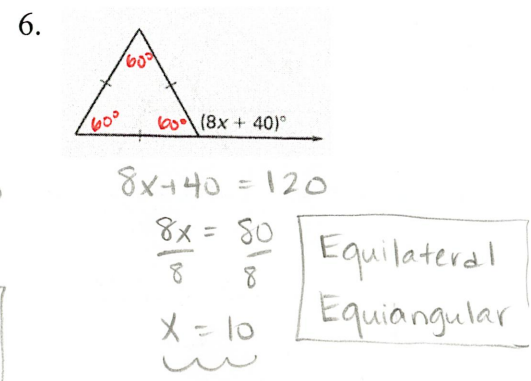 6.
60°
60° 60° (8x + 40)°
8x+40 = 120
8x = 80
8 8
x = 10
Equilateral
Equiangular